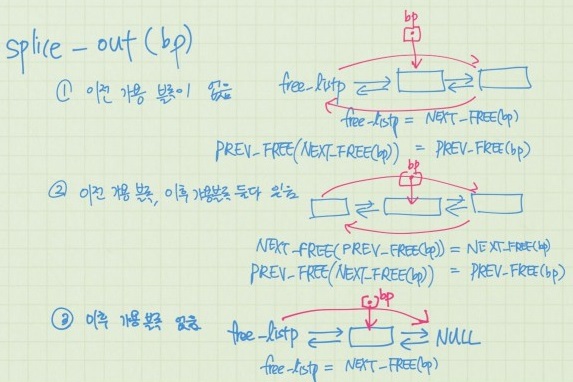 splice_out(bp)
① 이전 가용 블록이 없음
bp
free-listp
free-listp = NEXT_FREE(bp)
PREV_FREE(NEXT_FREE(bp)) = PREV_FREE(bp)
② 이전 가용 블록, 이후 가용블록 둘다 있음
bp
NEXT_FREE(PREV_FREE(bp)) = NEXT_FREE(bp)
PREV_FREE(NEXT_FREE(bp)) = PREV_FREE(bp)
③ 이후 가용 블록 없음
bp
free-listp NULL
free-listp = NEXT_FREE(bp)